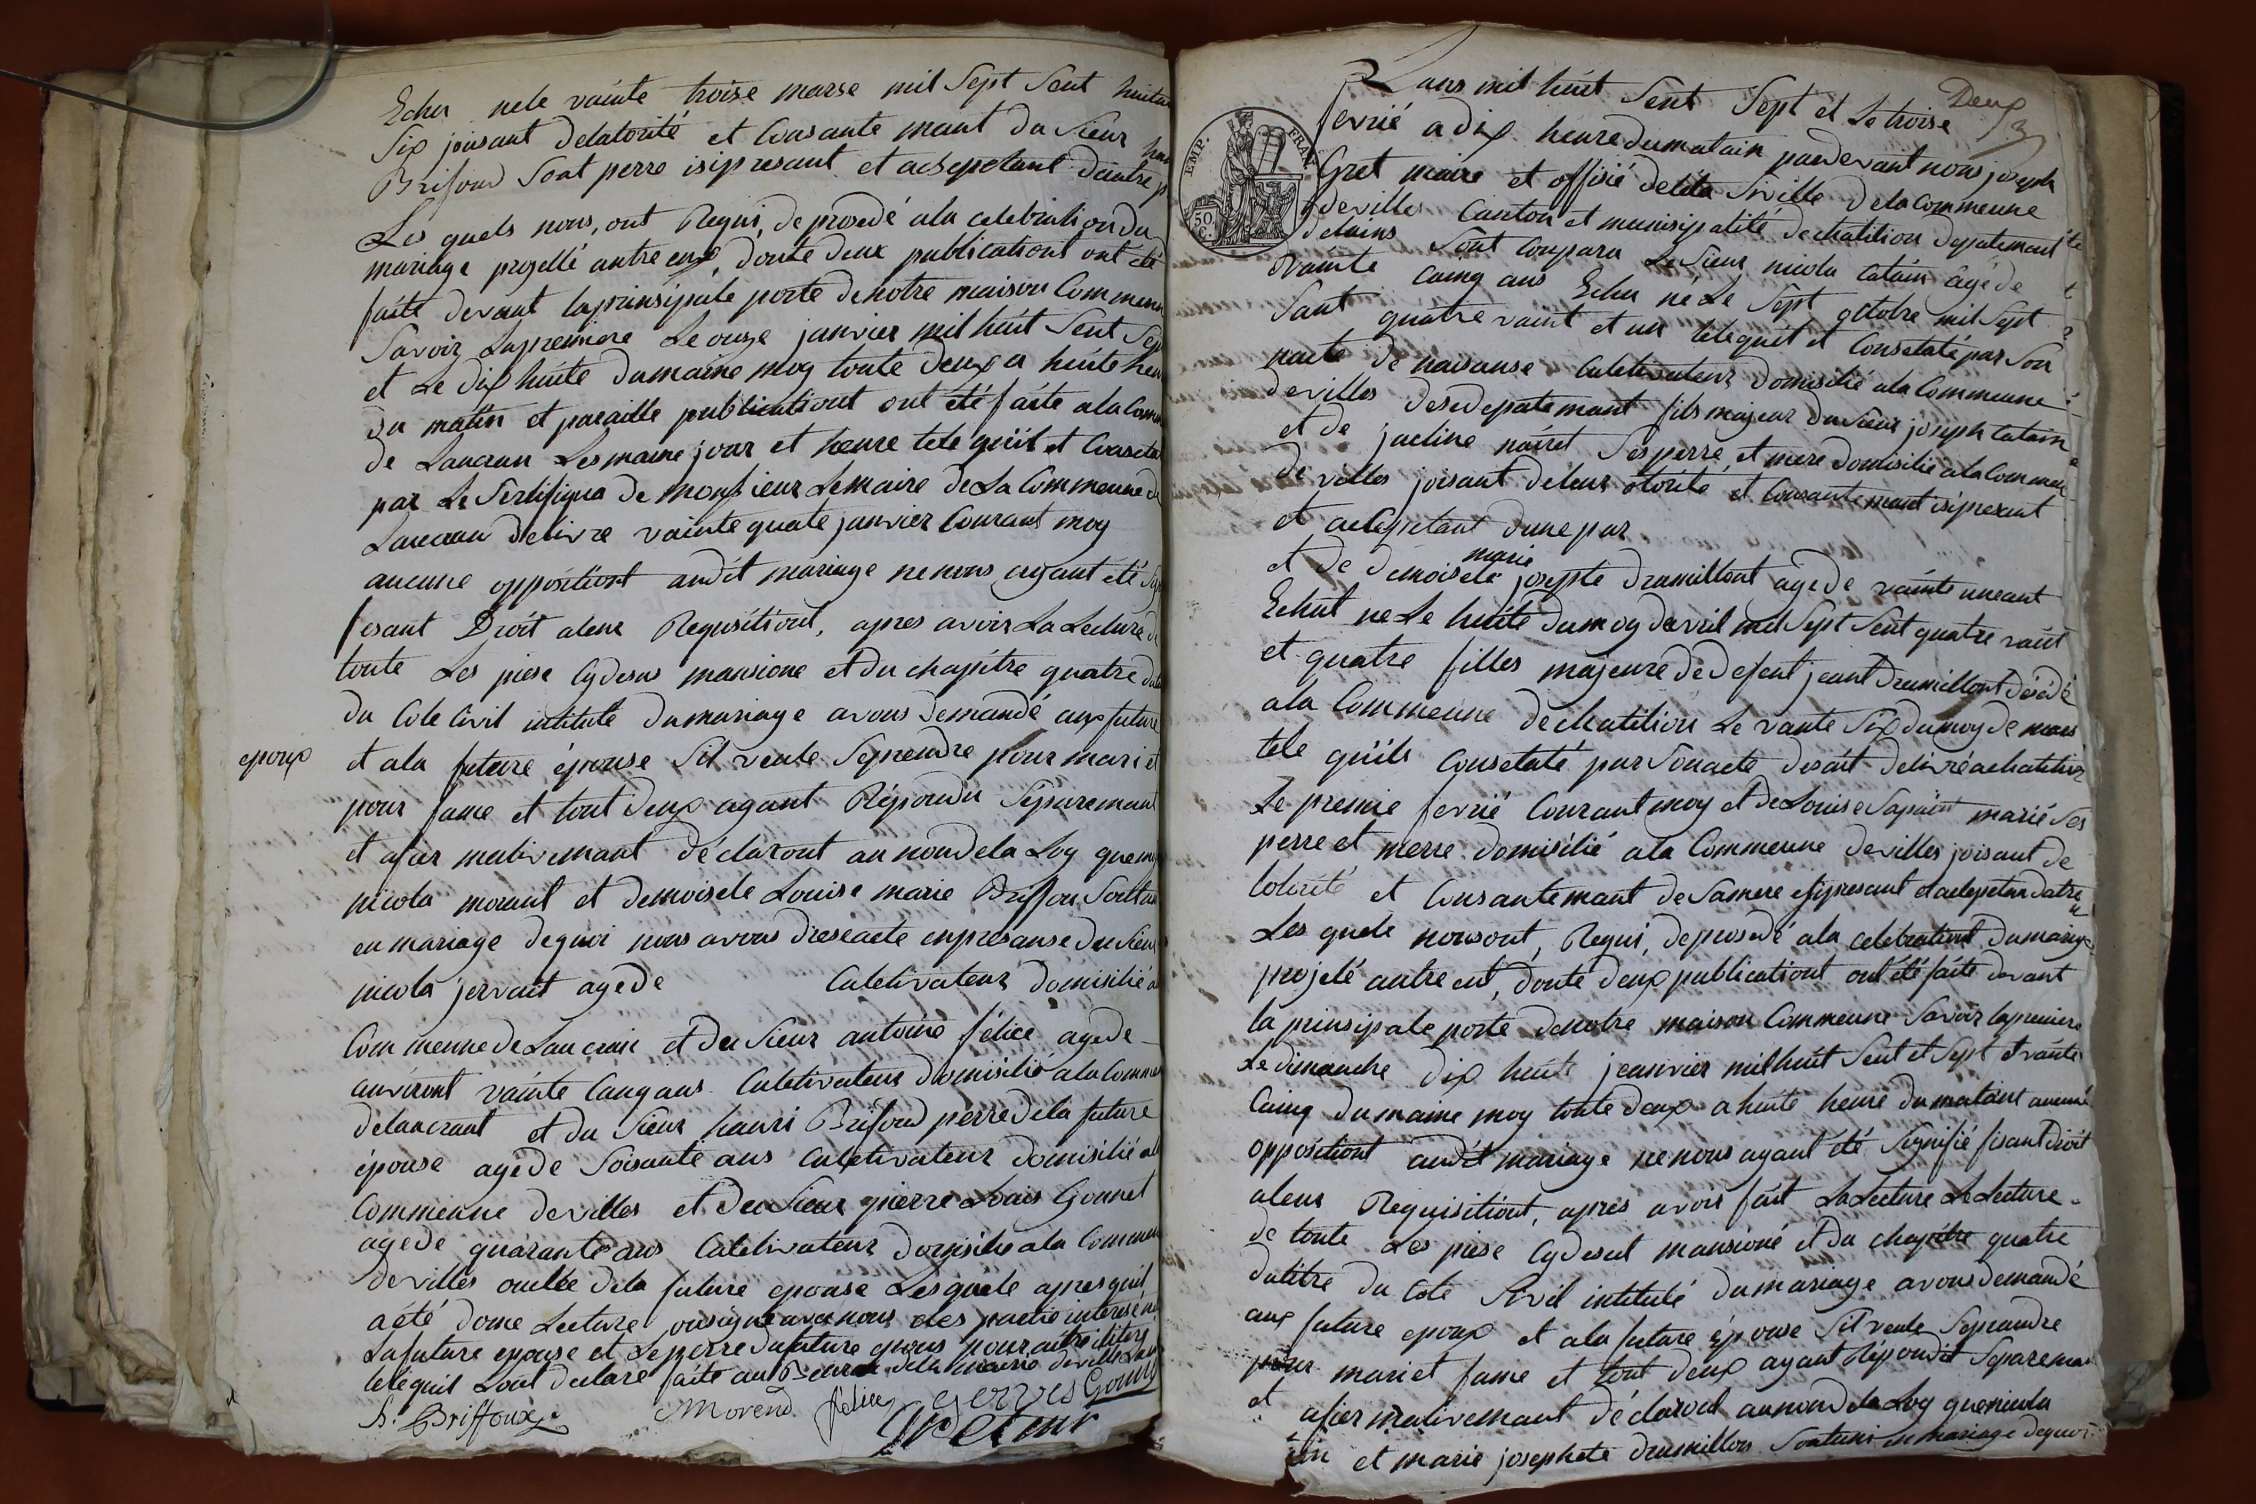 Echu nele vainte troise marse mil Sept Sent
Six joisant delatorité et Consante mant du Sieur
Brifoud Sont perre isipresant et acseptant dautre p
Les quels nous, ont Requi, de prosedé ala celebration du
mariage projetté antre eux, donte deux publicationt ont été
faite devant laprinsipale porte denotre maison Commune
Savoir Lapremiere Le onze janvier mil huit Sent Sep
et Le dix huite dumaime moy toute deux a huite heu
du matin et paraille publicationt ont été faite ala Com
de Lancran Lesmaime jour et heure tele qu'il et Consetat
par Le Sertifiqua de monsieur Lemaire de La Commeune de
Lancran delivre vainte quate janvier Courant moy
aucune oppositiont audit mariage nenous ayant été Sig
fesant Droit aleur Requisitiont, apres avoir La Lecture de
toute Les piese Cydesus mansione et du chapitre quatre
du Cote Civil intitulé du mariage avons demandé aux future
epoux
et ala future épouse Sil veuleSeprendre pour mari et
pour fame et tout deux ayant Répondu Séparemant
et afier mativemant déclaront au nom dela Loy que
nicola morant et demoisele Louise marie Briffou Sont
en mariage dequoi nous avons dresé acte enpresanse du Sieur
nicola jervait agede Culetivateur domisilié a
Commenne de Lancran et du Sieur antoine félice agede
anviront vainte Cinq ans Culetivateur domisilié ala Comme
delancrant et du Sieur hanri Brifoud perre dela future
épouse agede Soisante ans Culetivateur domisilié al
Commenne devilles et du Sieur pierre Louis Gonnet
agede quarante ans Culetivateur domisilié ala Commeu
devilles oncle dela future epouse Lesquele apres quil
a été done Lecture onsigné avec nous des partie interesé
Lafuture epouse et Leperre dufuture epous pour aitre
telequil Lont declaré faite au Bureau dela mairie deville
h. Briffoux Morend félice gervés Gonnet
Gret maire
Deux
Lans mil huit Sent Sept et Le troise
fevrié a dix heure dumatain pardevant nous joseph
Gret maire et offisié deléta Siville delacommeune
deville Canton et munisipalité dechatilion depatemant
delains Sont Conparu Le Sieur nicola Catain âgé de
vainte Cainq ans Echu né Le Sept octobre mil Sept
Sant quatre vaint et un telequil et Consetaté par Son
nacte de naisanse Culetivateur domisilié ala Commeune
devilles desedepatemant fils majeur du Sieur joseph Catain
et de jacline nairet Ses perre et mere domisilié ala Commeu
devilles joisant deleur otorité et Consantemant isipresant
et acseptant dune par
et de demoisele marie josepte dramillont agede vainte uneant
Echut ne Le huite dumoy davril mil Sept Sent quatre vaint
et quatre filles majeure de defent jeant dramillont désédé
ala Commeune dechatilion Le vante Six dumoy de mars
tele quils Consetaté par Sonacte desait delivré achatilion
Le premie fevrié Courant moy et deLouise Sapain marié Ses
perre et merre domisilié ala Commeune devilles joisant de
lotorité et Consantemant de Samere isipresant et acseptan datre
Les quele nousont, Requi, deprosedé ala celebrationt dumariage
projeté antre eut, donté deux publicationt ont été faite devant
la prinsipale porte denotre maison Commeune Savoir lapremiere
Le dimanche dix huite jeanvier milhuit Sent et Sept et vainte
Cainq dumaime moy toute deux a huite heure du matains aucune
oppositiont audit mariage nenous ayant été Signifié fisant Droit
aleur Requisitiont, apres avoir fait La Lecture Le Lecture
de toute Les piese Cydesut mansioné et du chapitre quatre
dutitre du Cote Sivil intitulé dumariage avonsdemandé
aux future epoux et ala future épouse Sil veule Seprandre
pour mari et fame et tout deux ayant Répondut Sépareman
et afier mativemant déclaront aunom dela Loy quenicola
et marie josephete dramillon Sontuni en mariage dequoi
EMP. FRAN.
50 C.